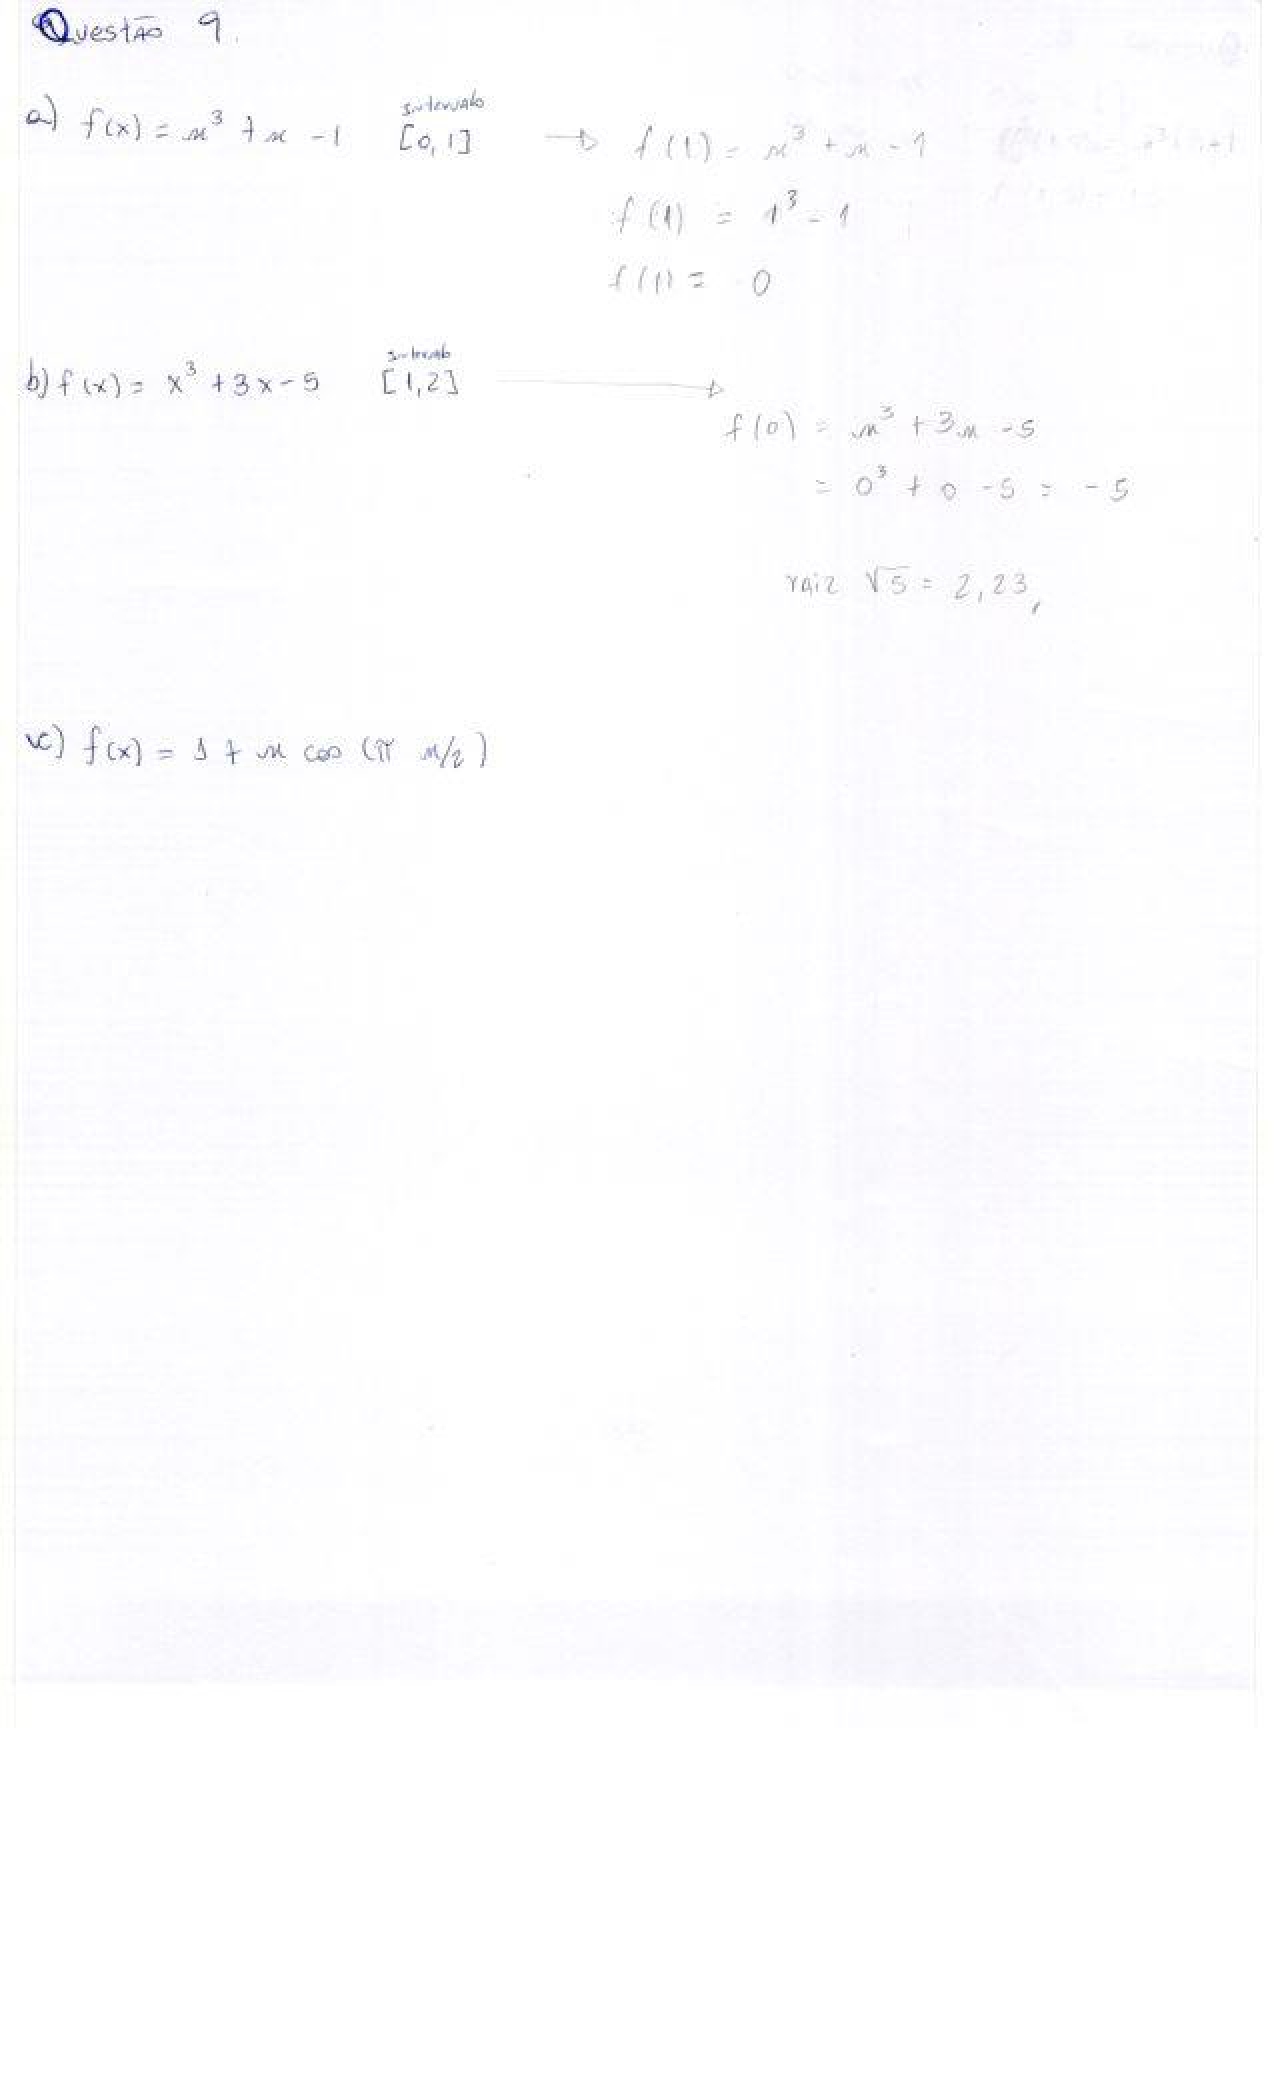 Questão 9.
a) f(x) = x³ + x - 1 intervalo [0,1] → f(1) = x³ + x - 1
f(1) = 1³ - 1
f(1) = 0
b) f(x) = x³ + 3x - 5 intervalo [1,2] → 
f(0) = x³ + 3x - 5
= 0³ + 0 - 5 = -5
raiz √5 = 2,23,
c) f(x) = 1 + x cos (π x/2)